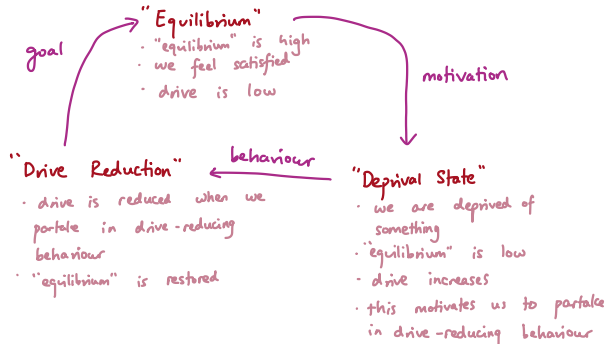 "Equilibrium"
· "equilibrium" is high
· we feel satisfied
· drive is low
goal
motivation
behaviour
"Deprival State"
· we are deprived of
something
· "equilibrium" is low
· drive increases
· this motivates us to partake
in drive-reducing behaviour
"Drive Reduction"
· drive is reduced when we
partake in drive-reducing
behaviour
· "equilibrium" is restored